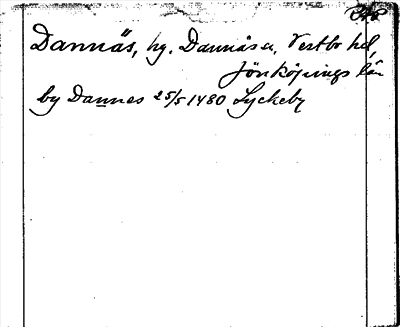 Dannäs, by. Dannäs sn, Västbo hd,
Jönköpings län
by Dannes 25/5 1480 Lyckeby